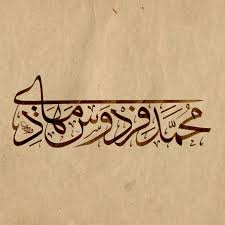 محمّد فردوس مهادي